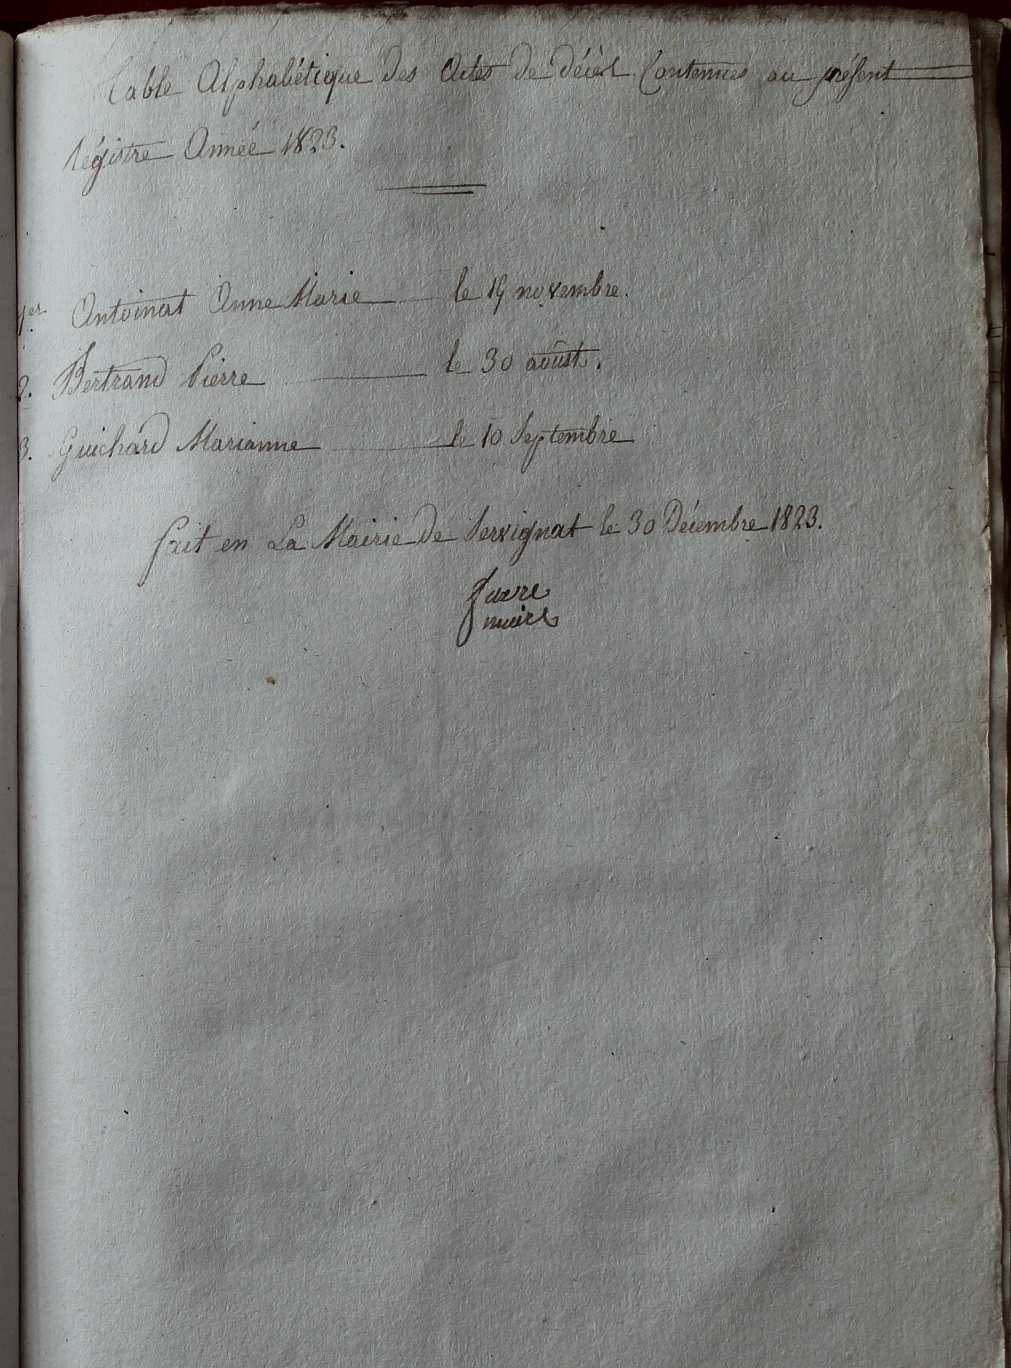 Table Alphabétique Des Actes de décès Contenues au présent
Régistre Année 1823.
1er Antoinat Anne Marie le 19 novembre.
2. Bertrand Pierre le 30 aoûst.
3. Guichard Marianne le 10 Septembre
fait en La Mairie de Servignat le 30 Décembre 1823.
favre
maire